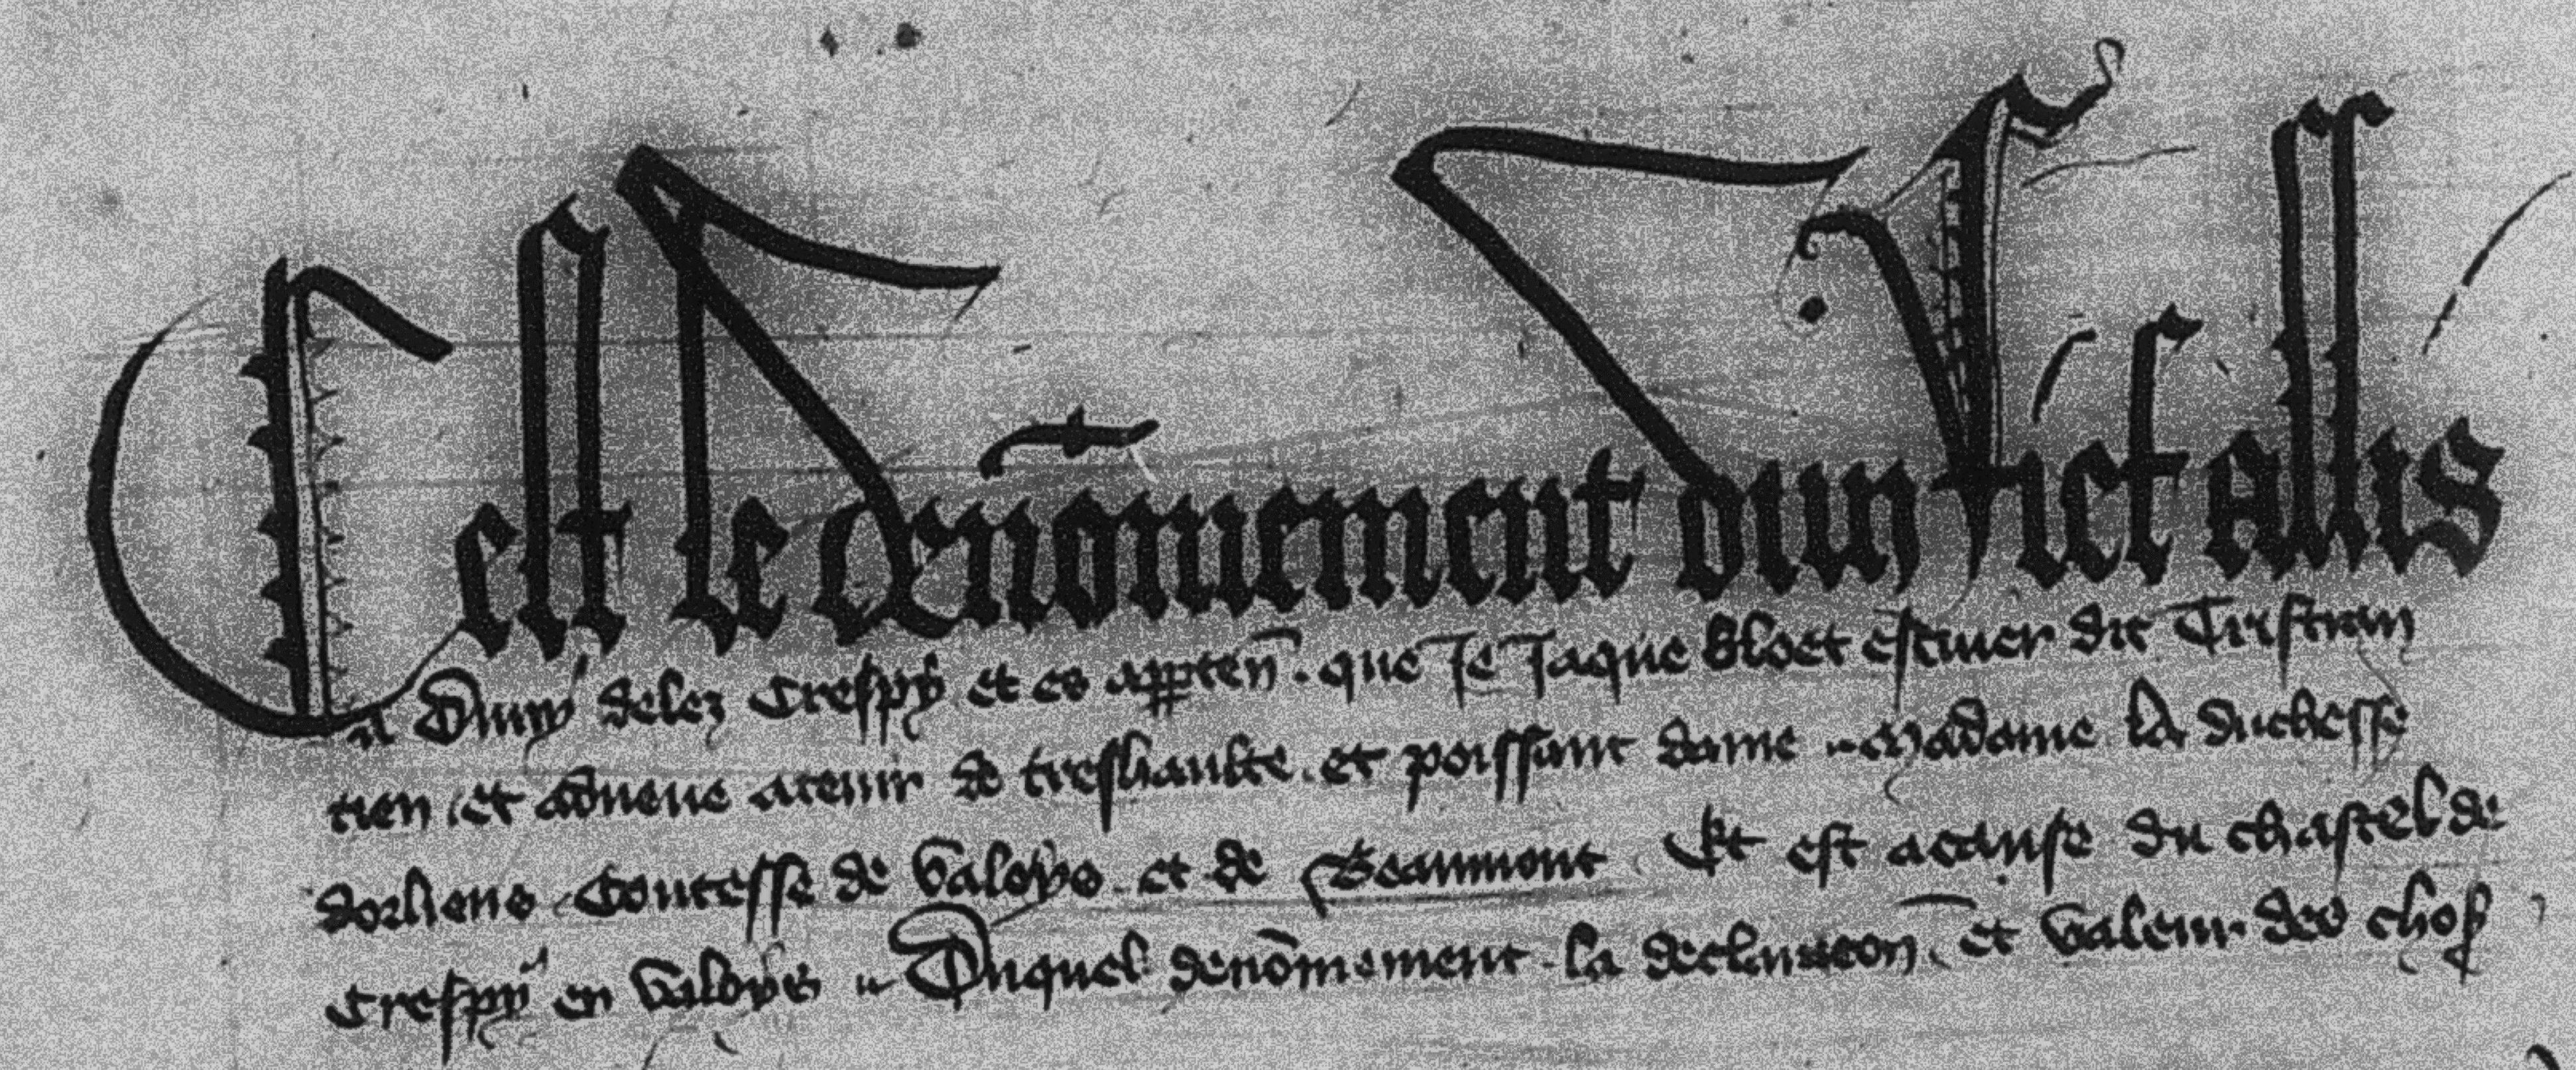 Cest le denõmement dun fief assis
a Duvy delez Crespy et es apptenˉ. que Je Jaque Bloet escuier dit Tristran
tien et adveue atenir de treshaulte. et poissant dame madame la duchesse
dorliens Contesse de Valoys. et de Beaumont Et est acause du chastel de
Crespy en Valoys Duquel denõmement. la declaracon et valeur des chos